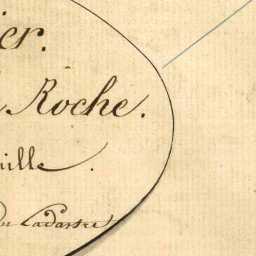 er.
Roche.
ille.
du Cadastre